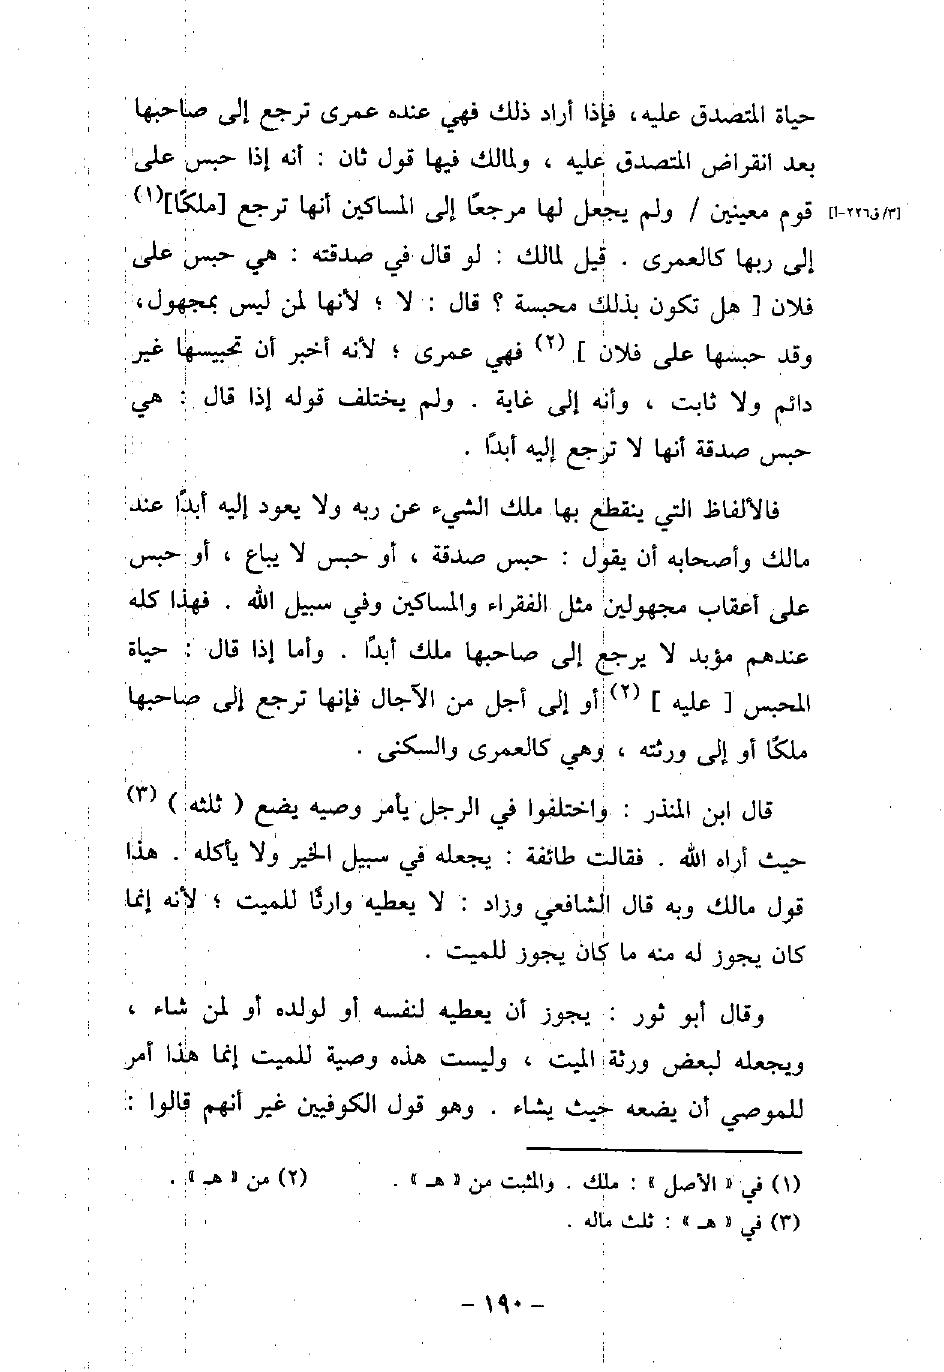 حياة المتصدق عليه، فإذا أراد ذلك فهي عنده عمرى ترجع إلى صاحبها
بعد انقراض المتصدق عليه ، ولمالك فيها قول ثان : أنه إذا حبس على
قوم معينين / ولم يجعل لها مرجعًا إلى المساكين أنها ترجع [ملكًا](١) [٣/ق٢٢٦-أ]
إلى ربها كالعمرى . قيل لمالك : لو قال في صدقته : هي حبس على
فلان [ هل تكون بذلك محبسة ؟ قال : لا ؛ لأنها لمن ليس بمجهول،
وقد حبسها على فلان ] (٢) فهي عمرى ؛ لأنه أخبر أن تحبيسها غير
دائم ولا ثابت ، وأنه إلى غاية . ولم يختلف قوله إذا قال : هي
حبس صدقة أنها لا ترجع إليه أبدًا .
فالألفاظ التي ينقطع بها ملك الشيء عن ربه ولا يعود إليه أبدًا عند
مالك وأصحابه أن يقول : حبس صدقة ، أو حبس لا يباع ، أو حبس
على أعقاب مجهولين مثل الفقراء والمساكين وفي سبيل الله . فهذا كله
عندهم مؤبد لا يرجع إلى صاحبها ملك أبدًا . وأما إذا قال : حياة
المحبس [ عليه ] (٢) أو إلى أجل من الآجال فإنها ترجع إلى صاحبها
ملكًا أو إلى ورثته ، وهي كالعمرى والسكنى .
قال ابن المنذر : واختلفوا في الرجل يأمر وصيه يضع ( ثلثه ) (٣)
حيث أراه الله . فقالت طائفة : يجعله في سبيل الخير ولا يأكله . هذا
قول مالك وبه قال الشافعي وزاد : لا يعطيه وارثًا للميت ؛ لأنه إنما
كان يجوز له منه ما كان يجوز للميت .
وقال أبو ثور : يجوز أن يعطيه لنفسه أو لولده أو لمن شاء ،
ويجعله لبعض ورثة الميت ، وليست هذه وصية للميت إنما هذا أمر
للموصي أن يضعه حيث يشاء . وهو قول الكوفيين غير أنهم قالوا :
(١) في « الأصل » : ملك . والمثبت من « هـ » . (٢) من « هـ » .
(٣) في « هـ » : ثلث ماله .
- ١٩٠ -